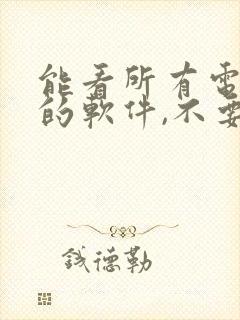 能看所有電
的軟件,不要
钱德勒